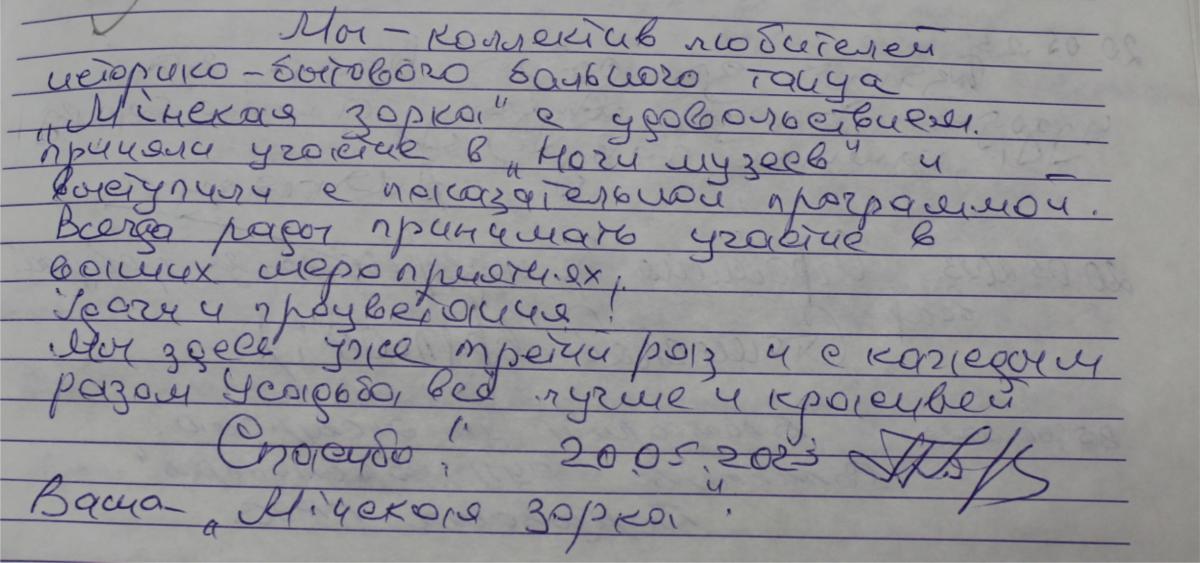 Мы – коллектив любителей
историко-бытового бального танца
„Мінская зорка" с удовольствием
приняли участие в „Ночи музеев" и
выступили с показательной программой.
Всегда рады принимать участие в
ваших мероприятиях,
Удачи и процветания!
Мы здесь уже третий раз и с каждым
разом Усадьба всё лучше и красивей
Спасибо! 20.05.2023
Ваша – „Мінская зорка".